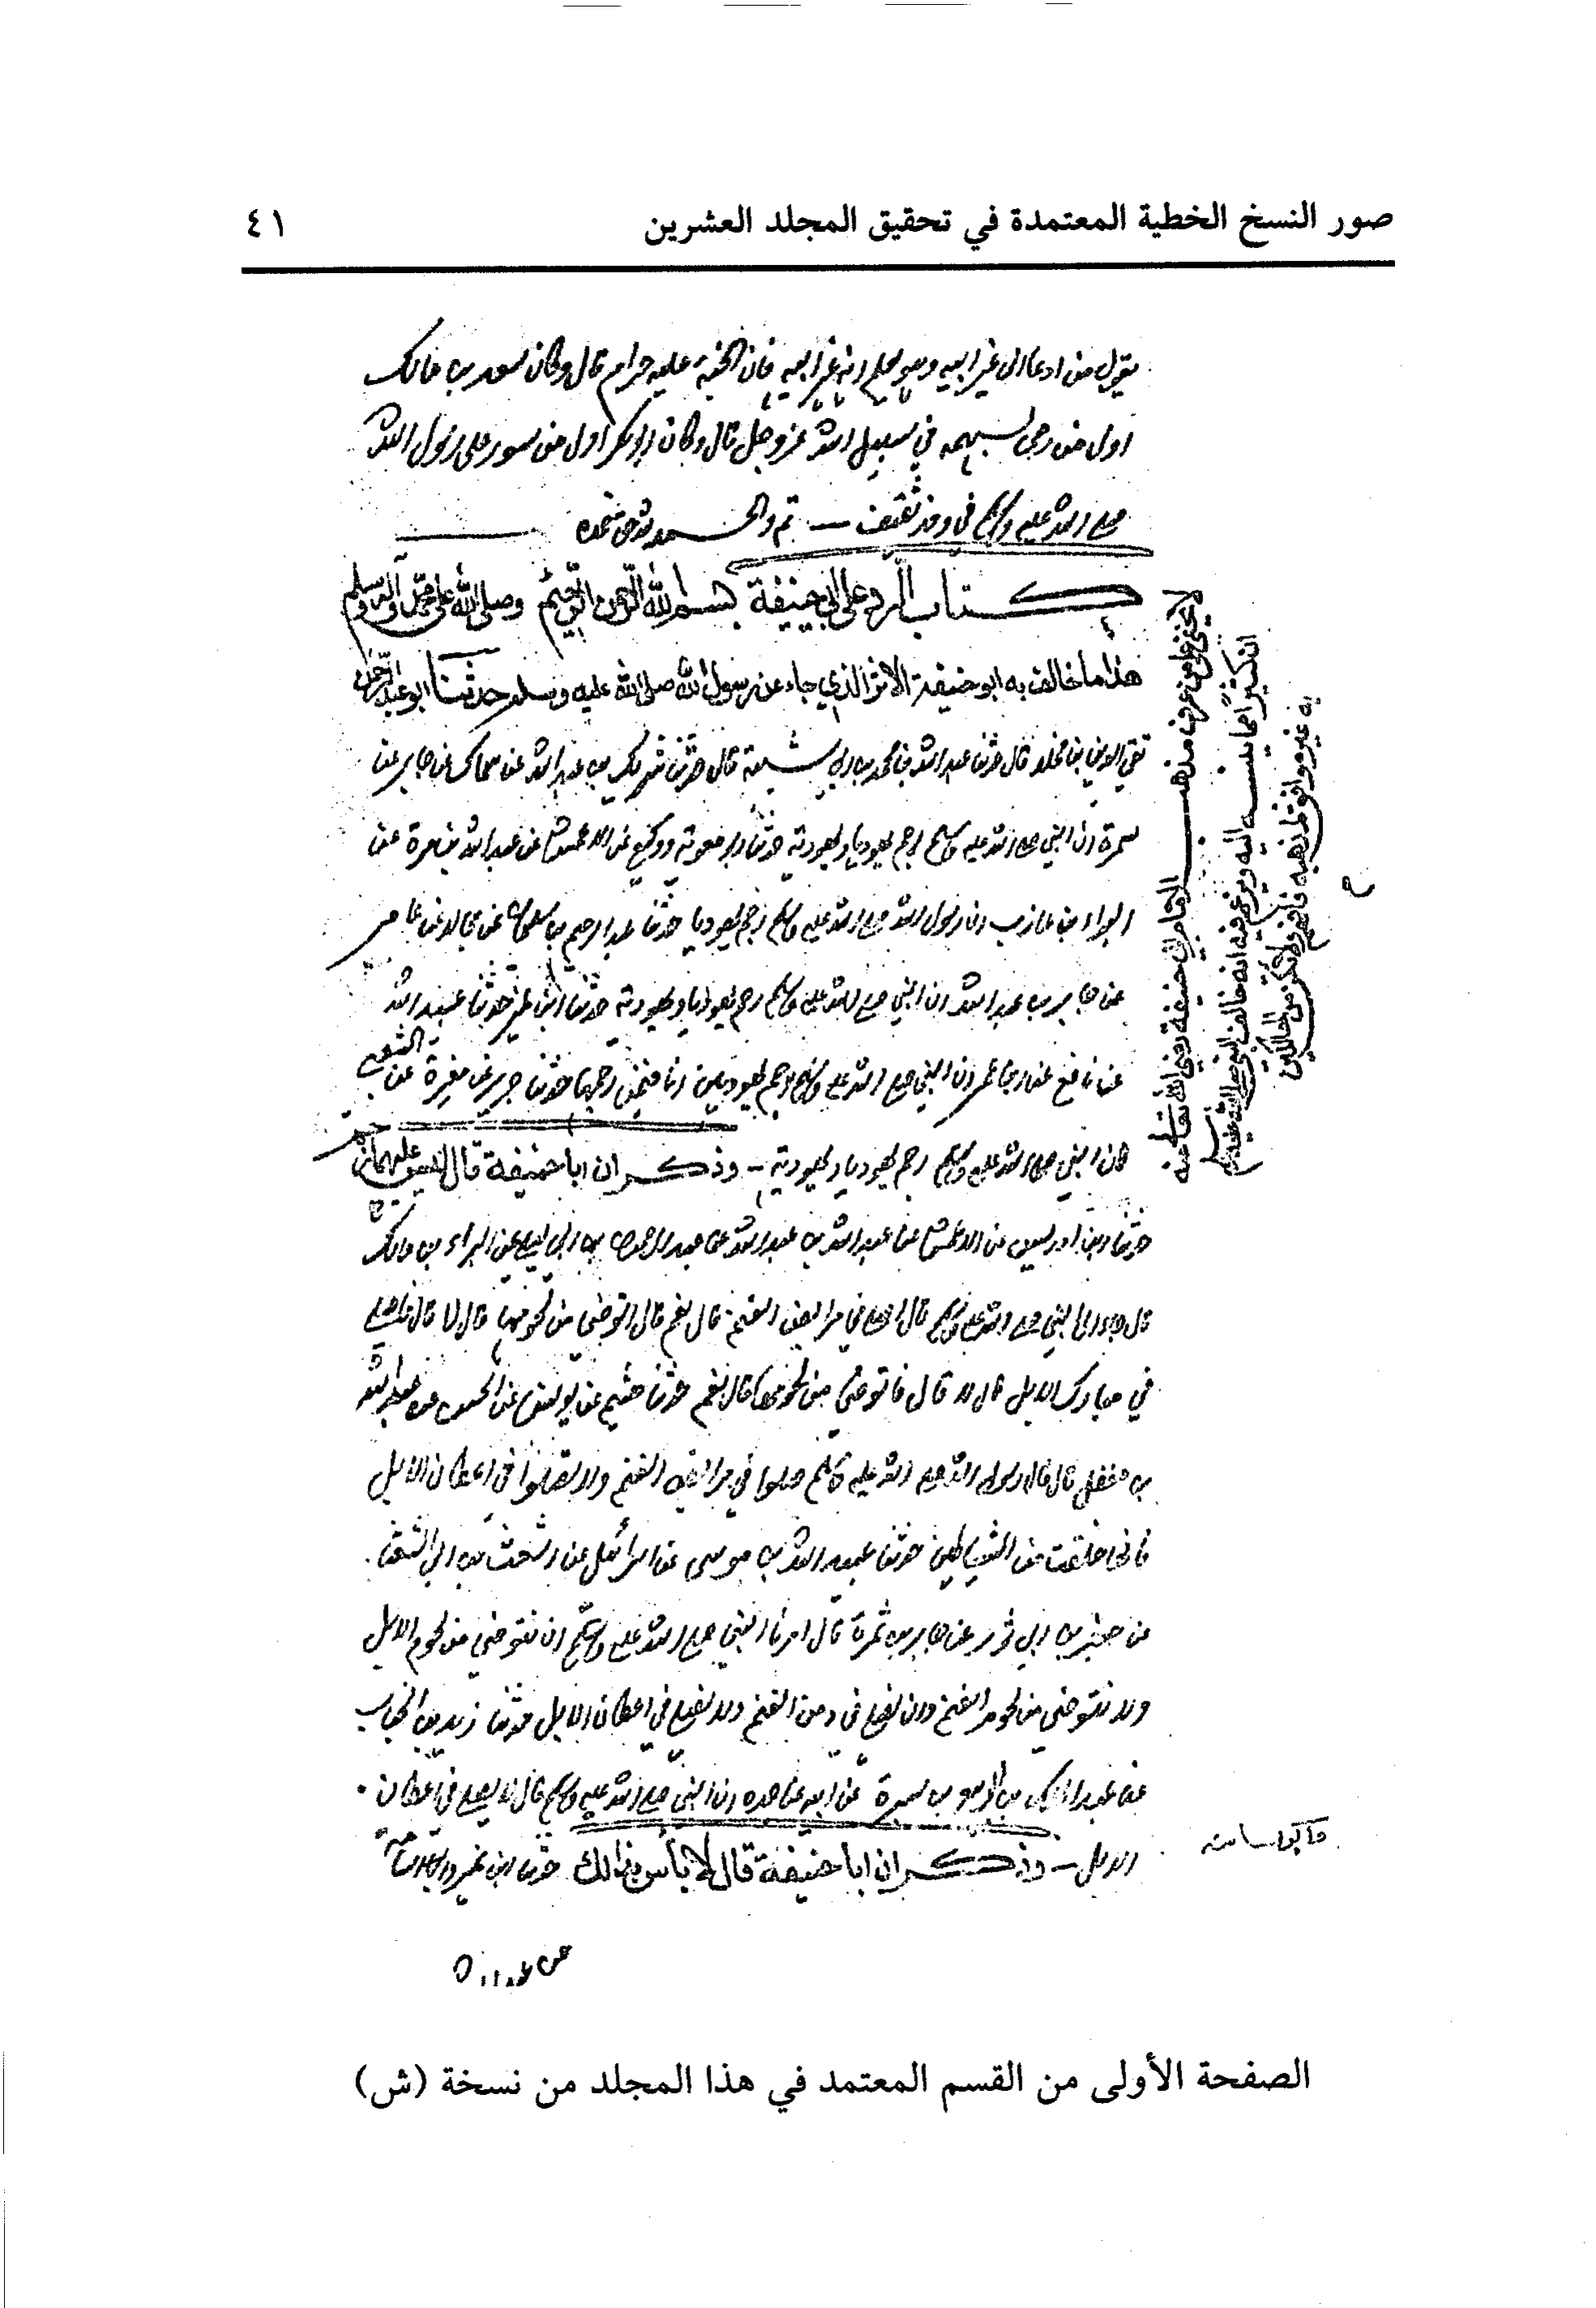 صور النسخ الخطية المعتمدة في تحقيق المجلد العشرين
٤١
يقول من ادعا الى غير ابيه وهو يعلم انه غير ابيه فان الجنة عليه حرام قال وكان سعد بن مالك
اول من رمى بسهم في سبيل الله عز وجل قال وكان ابو بكر اول من تسور على رسول الله
صلى الله عليه وسلم في وفد ثقيف – تم والحمد لله حق حمده
كتاب الرد على ابي حنيفة بسم الله الرحمن الرحيم وصلى الله على محمد وآله وسلم
هذا ما خالف به ابو حنيفة الاثر الذي جاء عن رسول الله صلى الله عليه وسلم حدثنا ابو عبد الرحمن
بقي بن مخلد قال حدثنا عبد الله بن محمد بن ابي شيبة قال حدثنا شريك بن عبد الله عن سماك عن جابر بن
سمرة ان النبي صلى الله عليه وسلم رجم يهوديا ويهودية حدثنا ابو معوية ووكيع عن الاعمش عن عبد الله بن مرة عن
البراء بن عازب ان رسول الله صلى الله عليه وسلم رجم يهوديا حدثنا عبد الرحيم بن سليمان عن مجالد عن عامر
عن جابر بن عبد الله ان النبي صلى الله عليه وسلم رجم يهوديا ويهودية حدثنا ابن نمير حدثنا عبيد الله
عن نافع عن ابن عمر ان النبي صلى الله عليه وسلم رجم يهوديين انا فيمن رجمهما حدثنا جرير عن مغيرة عن الشعبي
ان النبي صلى الله عليه وسلم رجم يهوديا ويهودية – وذكر ان ابا حنيفة قال ليس عليهما
حدثنا ابن ادريس عن الاعمش عن عبد الله بن عبد الله عن عبد الرحمن بن ابي ليلى عن البراء بن مالك
قال جاء الى النبي صلى الله عليه وسلم قال اصلي في مرابض الغنم قال نعم قال اتوضئ من لحومها قال لا قال فاصلي
في مبارك الابل قال لا قال فاتوضئ من لحومها قال نعم حدثنا هشيم عن يونس عن الحسن عن عبد الله
بن مغفل قال قال رسول الله صلى الله عليه وسلم صلوا في مرابض الغنم ولا تصلوا في اعطان الابل
فانها خلقت من الشياطين حدثنا عبيد الله بن موسى عن اسرائيل عن اشعث بن ابي الشعثا
عن جعفر بن ابي ثور عن جابر بن سمرة قال امرنا النبي صلى الله عليه وسلم ان نتوضئ من لحوم الابل
ولا نتوضئ من لحوم الغنم وان نصلي في دمن الغنم ولا نصلي في اعطان الابل حدثنا زيد بن الحباب
عن عبد الملك بن الربيع بن سبرة عن ابيه عن جده ان النبي صلى الله عليه وسلم قال لا يصلى في اعطان
الابل – وذكر ان ابا حنيفة قال لا بأس بذالك حدثنا ابن نمير وابو اسامة
لا يخفى على من عرف مذهب الامام ابي حنيفة رضي الله تعالى عنه
ان كثيرا مما ينسبه اليه ويزعم فيه انه خالف النبي صلى الله عليه وسلم
به غير موافق لمذهبه فافهم ولا تكن من الهالكين
الصفحة الأولى من القسم المعتمد في هذا المجلد من نسخة (ش)